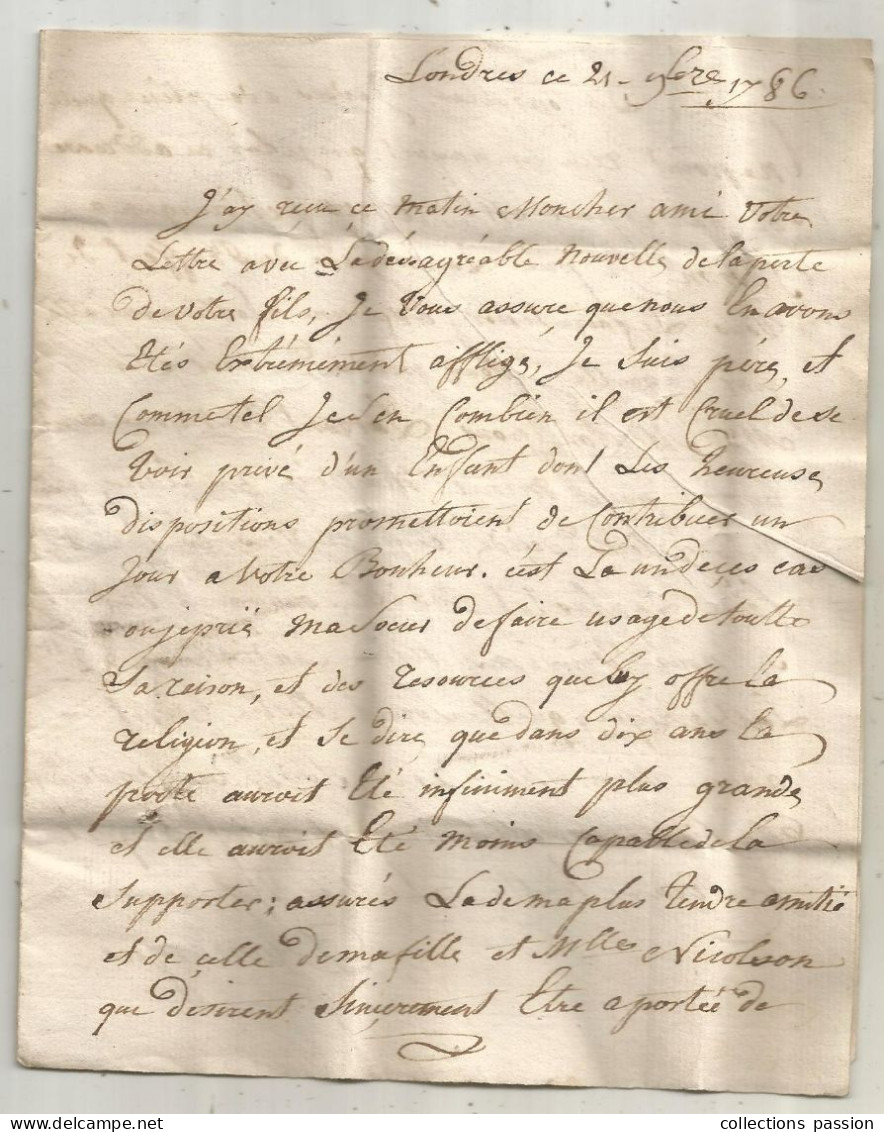 Londres ce 21 - 9bre 1786.
J'ay réçu ce matin Moncher ami votre
Lettre avéc La désagréable nouvelle de la perte
de votre fils, Je vous assure que nous En avons
Etés Extrémément affligé, Je suis pére, et
Comme tel Je sen Combien il est Cruel de se
voir privé d'un Enfant dont Les heureuse
dispositions promettoient de Contribuer un
Jour a votre Bonheur. c'est La un de ces cas
ou je prië ma soeur de faire usage de toutte
sa reison, et des resources que luy offre la
religion, et se dire que dans dix ans la
perte auroit Eté infiniment plus grande
et elle auroit Eté moins Capable de la
supporter; assurés La de ma plus tendre amitié
et de celle de ma fille et Mlles Nicolson
que désirent sincerement Etre a portée de
collections passion